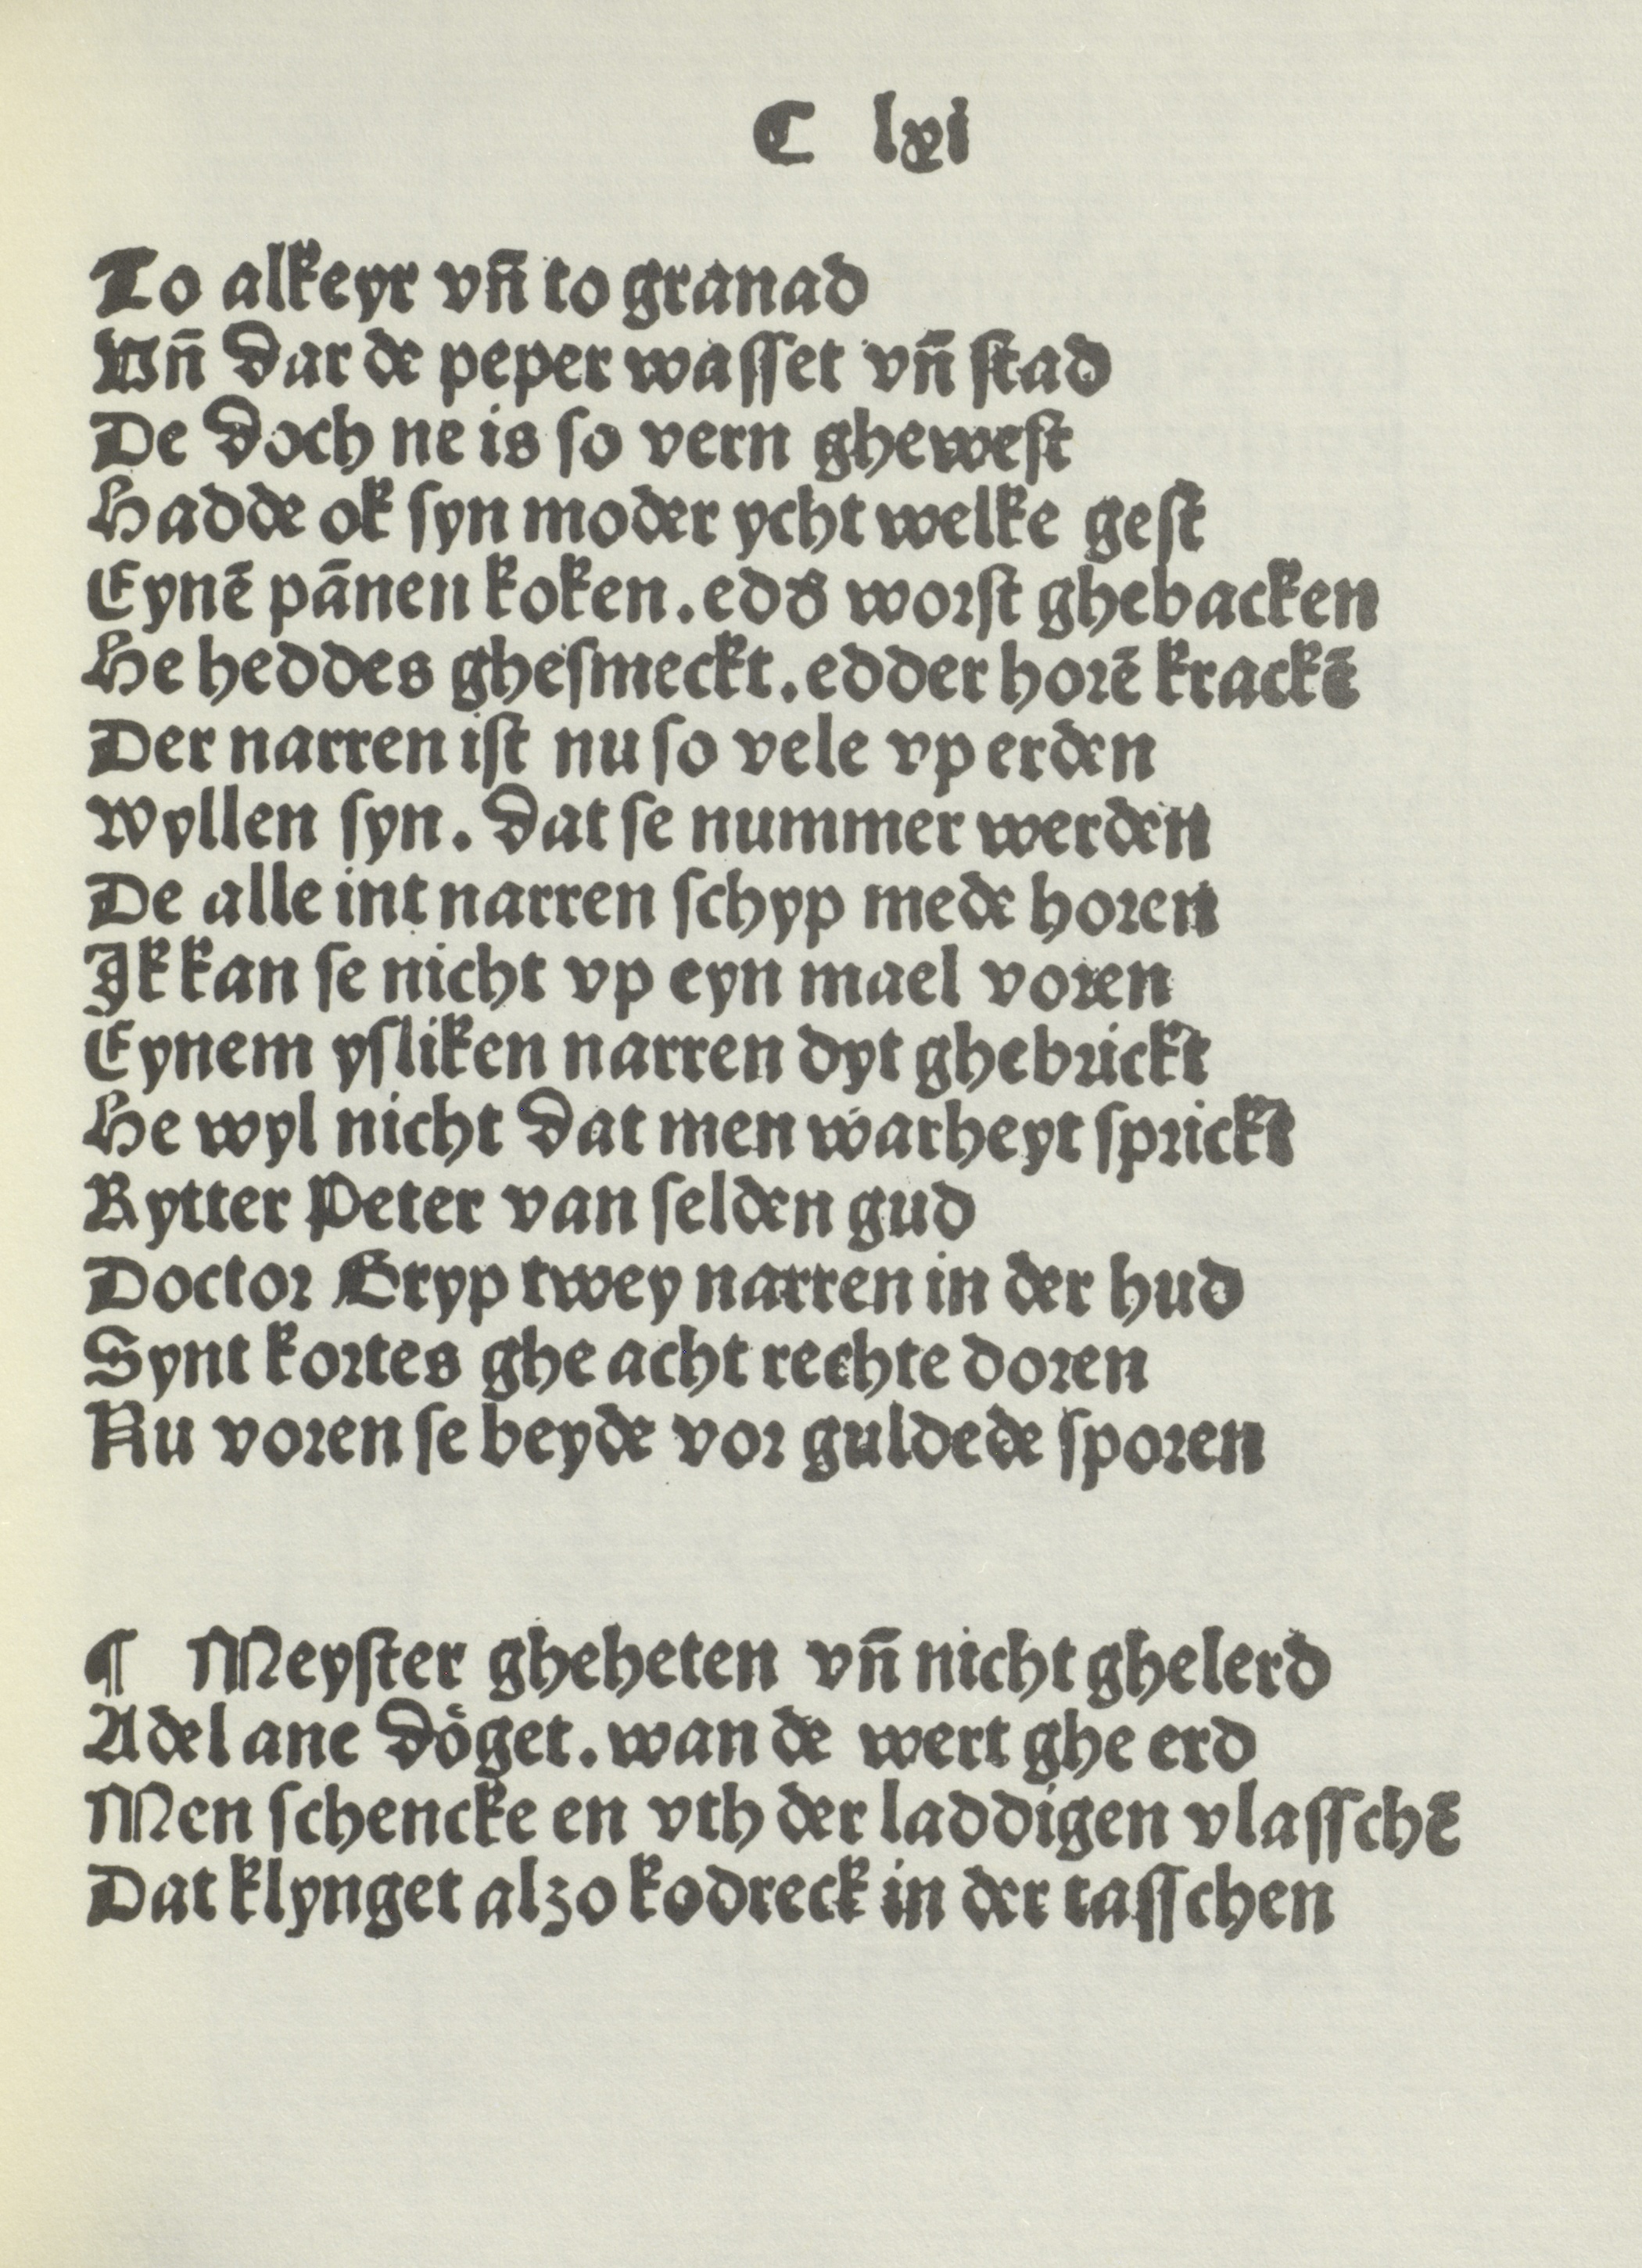 C lxi
To alkeyr vñ to granad
Vñ dar de peper wasset vñ stad
De doch ne is so vern ghewest
Hadde ok syn moder ycht welke gest
Eynē pānen koken. edd' worst ghebacken
He heddes ghesmeckt. edder horē krackē
Der narren ist nu so vele vp erden
Wyllen syn. dat se nummer werden
De alle int narren schyp mede horen
Ik kan se nicht vp eyn mael voren
Eynem ysliken narren dyt ghebrickt
He wyl nicht dat men warheyt sprickt
Rytter Peter van selden gud
Doctor Gryp twey narren in der hud
Synt kortes ghe acht rechte doren
Nu voren se beyde vor guldede sporen
¶ Meyster gheheten vñ nicht ghelerd
Adel ane dȯget. wan de wert ghe erd
Men schencke en vth der laddigen vlasschē
Dat klynget alzo kodreck in der tasschen